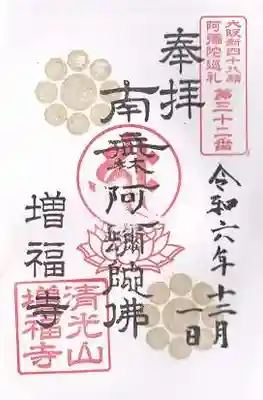 大阪新四十八願
阿彌陀巡礼
第三十二番
奉拝
南無阿彌陀佛
令和六年十二月
一日
増福寺
清光山
増福寺